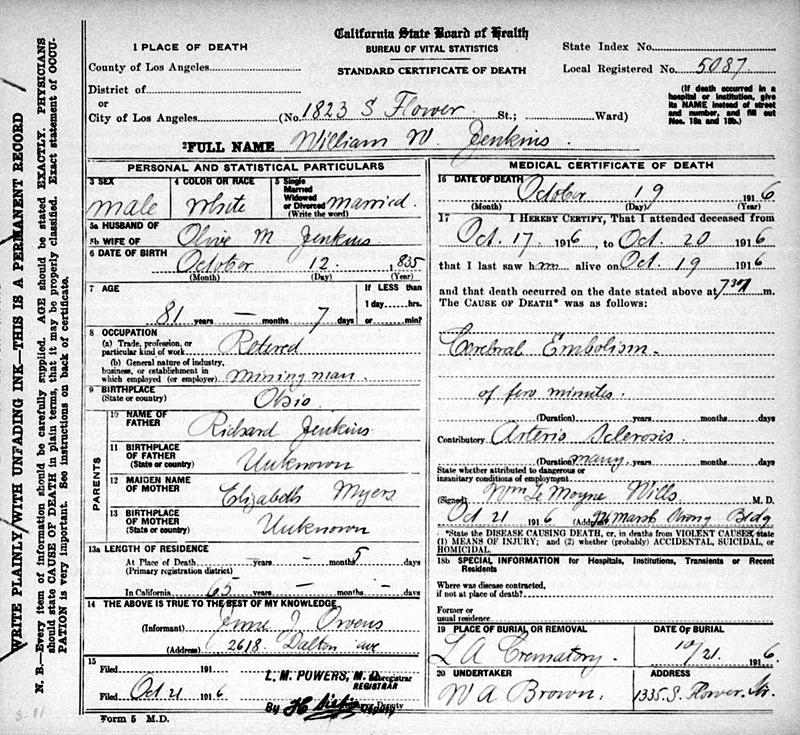 California State Board of Health
BUREAU OF VITAL STATISTICS
STANDARD CERTIFICATE OF DEATH
State Index No.
Local Registered No. 5087
(If death occurred in a hospital or institution, give its NAME instead of street and number, and fill out Nos. 18a and 18b.)
1 PLACE OF DEATH
County of Los Angeles
District of
or
City of Los Angeles (No. 1823 S Flower St.; Ward)
2FULL NAME William W. Jenkins.
WRITE PLAINLY WITH UNFADING INK—THIS IS A PERMANENT RECORD
N. B.—Every item of information should be carefully supplied. AGE should be stated EXACTLY. PHYSICIANS
should state CAUSE OF DEATH in plain terms, that it may be properly classified. Exact statement of OCCU-
PATION is very important. See instructions on back of certificate.
PERSONAL AND STATISTICAL PARTICULARS
3 SEX
male
4 COLOR OR RACE
White
5 Single
Married
Widowed
or Divorced married.
(Write the word)
5a HUSBAND OF
5b WIFE OF Olive M Jenkins
6 DATE OF BIRTH
October 12. 1835
(Month) (Day) (Year)
7 AGE
81 years — months 7 days
If LESS than
1 day hrs.
or min?
8 OCCUPATION
(a) Trade, profession, or
particular kind of work Retered
(b) General nature of industry,
business, or establishment in
which employed (or employer) mining man.
9 BIRTHPLACE
(State or country) Ohio
PARENTS
10 NAME OF
FATHER Richard Jenkins
11 BIRTHPLACE
OF FATHER
(State or country) Unknown
12 MAIDEN NAME
OF MOTHER Elizabeth Myers
13 BIRTHPLACE
OF MOTHER
(State or country) Unknown
13a LENGTH OF RESIDENCE
At Place of Death — years — months 5 days
(Primary registration district)
In California 65 years — months — days
14 THE ABOVE IS TRUE TO THE BEST OF MY KNOWLEDGE
(Informant) J Owens
(Address) 2618 Dalton ave
15
Filed 191
Filed Oct 21 1916
L. M. POWERS, M. D.
REGISTRAR
By
Deputy
Form 5 M.D.
MEDICAL CERTIFICATE OF DEATH
16 DATE OF DEATH
October 19 1916
(Month) (Day) (Year)
17 I HEREBY CERTIFY, That I attended deceased from
Oct. 17 1916, to Oct. 20 1916
that I last saw him alive on Oct. 19 1916
and that death occurred on the date stated above at 730 m.
The CAUSE OF DEATH* was as follows:
Cerebral Embolism.
of few minutes.
(Duration) years months days
Contributory Arterio Sclerosis.
(Duration) many years months days
State whether attributed to dangerous or
insanitary conditions of employment.
(Signed) Wm Le Moyne Wills M. D.
Oct 21 1916 (Address) Marsh Strong Bldg
*State the DISEASE CAUSING DEATH, or, in deaths from VIOLENT CAUSES, state
(1) MEANS OF INJURY; and (2) whether (probably) ACCIDENTAL, SUICIDAL, or
HOMICIDAL.
18b SPECIAL INFORMATION for Hospitals, Institutions, Transients or Recent
Residents
Where was disease contracted,
if not at place of death?
Former or
usual residence
19 PLACE OF BURIAL OR REMOVAL
L A Crematory.
DATE OF BURIAL
10/21. 1916
20 UNDERTAKER
W A Brown.
ADDRESS
1335 S. Flower St.